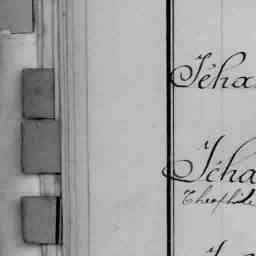 Jéha
Jéha
Théophile